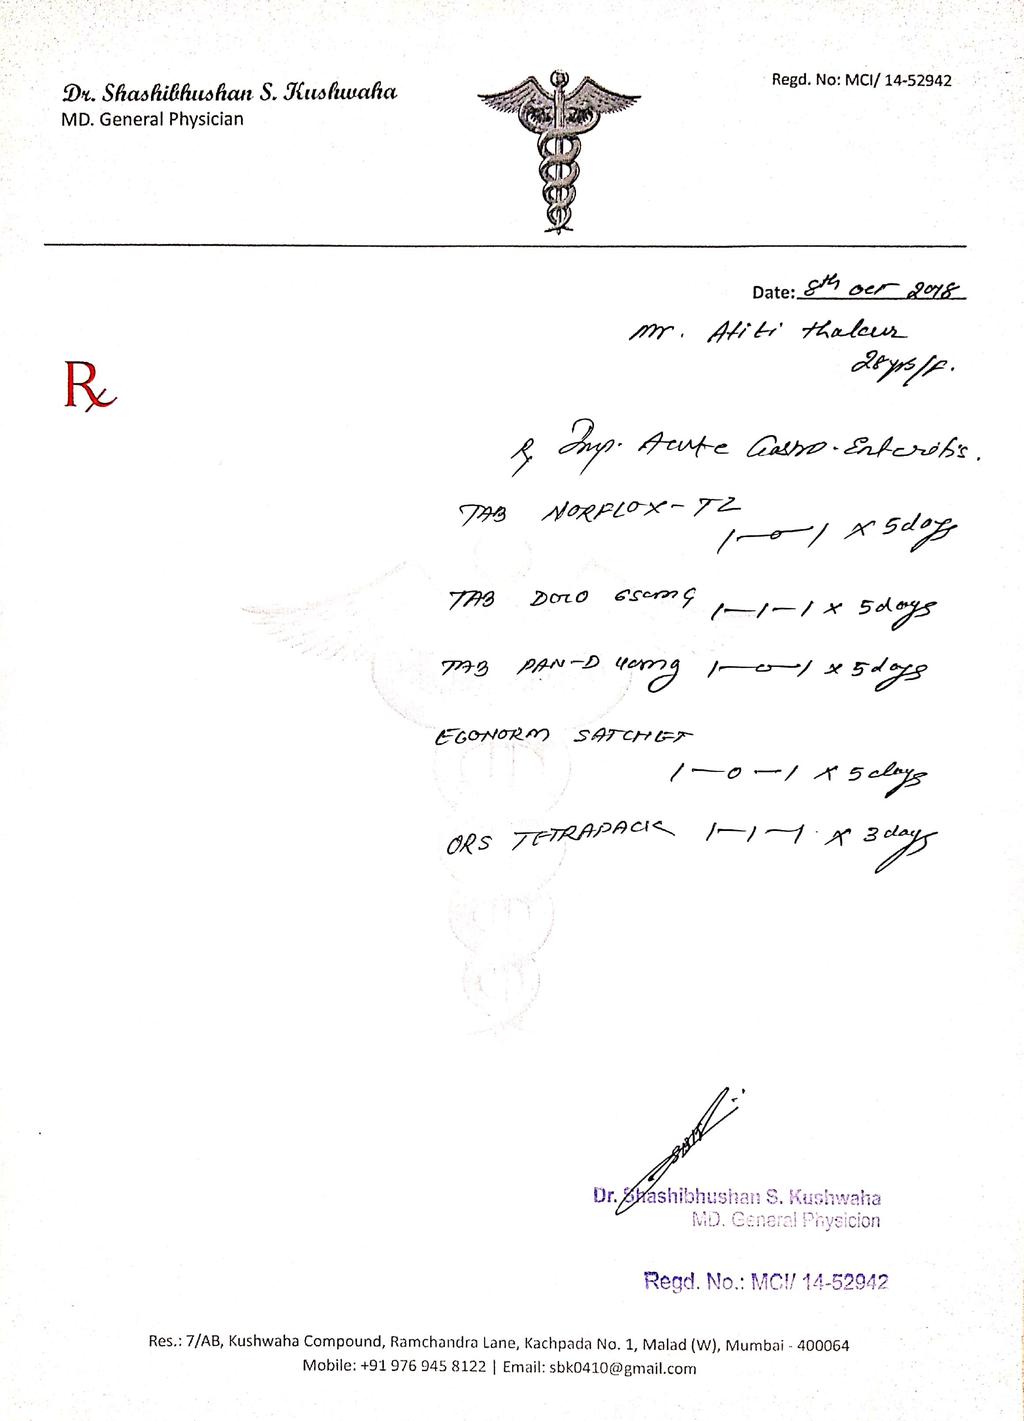 Dr. Shashibhushan S. Kushwaha
MD. General Physician
Regd. No: MCI/ 14-52942
Date: 8th oct 2018
Mr. Atiti Thakur
28yrs/F.
Rx
Rx Imp. Acute Gastro-Enteritis.
TAB NORFLOX-TZ
1-0-1 x 5days
TAB DOLO 650mg 1-1-1 x 5days
TAB PAN-D 40mg 1-0-1 x 5days
EGONORM SATCHET
1-0-1 x 5days
ORS TETRAPACK 1-1-1 x 3days
Dr. Shashibhushan S. Kushwaha
MD. General Physicion
Regd. No.: MCI/ 14-52942
Res.: 7/AB, Kushwaha Compound, Ramchandra Lane, Kachpada No. 1, Malad (W), Mumbai - 400064
Mobile: +91 976 945 8122 | Email: sbk0410@gmail.com